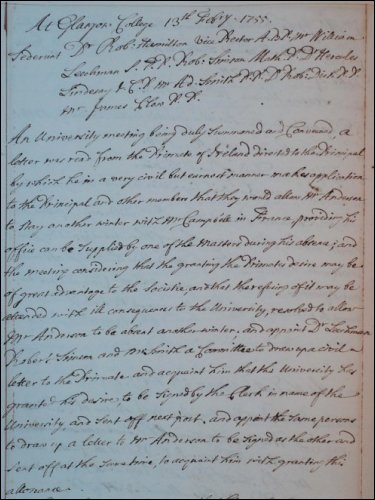 At Glasgow College 13th Febry. 1755.
Sederunt Dr Rob: Hamilton Vice Rector A.B.P. Mr William
Leechman S.T.P. Rob: Simson Math. P. Dr Hercules
Lindesay J.C.P. Mr Ad: Smith P.P. Dr Rob: Dick P.P
Mr James Clow P.P.
An University meeting being duly Summoned and Conveened, a
letter was read from the Primate of Ireland directed to the Principal
by which he in a very civil but earnest manner makes application
to the Principal and other members that they would allow Mr Anderson
to stay another winter with Mr Campbell in France, providing his
office can be supplied by one of the Masters during his absence; and
the meeting considering that the granting the Primates desire may be
of great advantage to the Societie, and that the refusing of it may be
attended with ill consequences to the University, resolved to allow
Mr Anderson to be absent another winter, and appoint Dr Leechman
Robert Simson and Mr Smith a Committee to draw up a civil
letter to the Primate and acquaint him that the University has
granted his desire, to be signed by the Clerk in name of the
University and sent off next post, and appoint the same persons
to draw up a letter to Mr Anderson to be signed as the other and
sent off at the same time, to acquaint him with granting this
allowance.